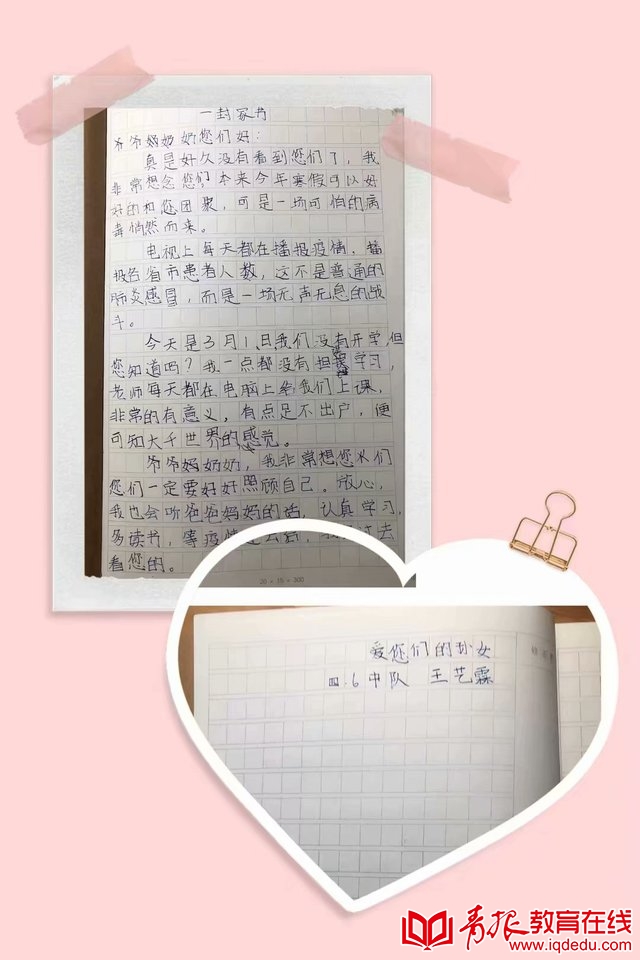 一封家书
爷爷妈奶奶您们好:
真是好久没有看到您们了,我
非常想念您们本来今年寒假可以好
好的和您团聚,可是一场可怕的病
毒悄然而来。
电视上每天都在播报疫情,播
报各省市患者人数,这不是普通的
肺炎感冒,而是一场无声无息的战
斗。
今天是3月1日,我们没有开学,但
您知道吗?我一点都没有担误学习,
老师每天都在电脑上给我们上课,
非常的有意义,有点足不出户,便
可知大千世界的感觉。
爷爷妈奶奶,我非常想您们
您们一定要好好照顾自己。放心,
我也会听爸爸妈妈的话,认真学习,
多读书,等疫情过去后,去
看您的。
20×15=300
爱您们的孙女
四.6中队 王艺霖
青报教育在线
www.iqdedu.com